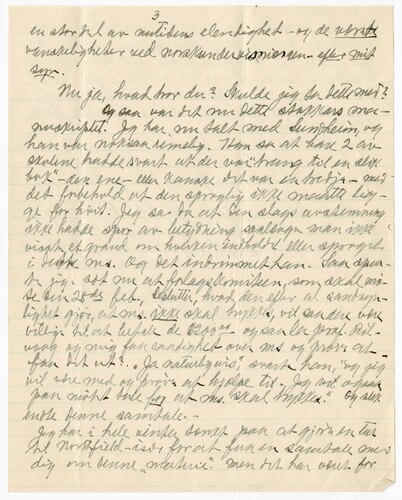 3
en stor del av nutidens elendighet - og de verste
vanskeligheter ved norskundervisningen - efter mit
syn.
Nu ja, hvad tror du? Skulde jeg ta dette med?
Og saa var det nu dette stakkars ma-
nuskriptet. Jeg har nu talt med Sundheim, og
han var noksaa nemelig. Han sa at bare 2 av
skolene hadde svart at der var trang til en slik
bok" - den ene - eller kanske det var en tredje - med
det forbehold at den sproglig ikke maatte lig-
ge for høit. Jeg sa da at den slags avstemning
ikke hadde spor av betydning saalenge man ikke
visste et grand om hverken indhold eller sproget
i dette ms. Og det indrømmet han. Saa spur-
te jeg: sæt nu at forlagskomiteen, som skal mø-
te den 28de feb., beslutter, hvad den efter al sandsyn-
lighet gjør, at ms. ikke skal trykkes, vil san den være
villig til at betale de $200.00 og saa la prof.
og mig faa raadighet over ms og prøve at
faa det ut?" "Ja naturligvis", svarte han, "og jeg
vil være med og prøve at hjelpe til. Jeg vil ogsaa
paa møtet tale for at ms. skal trykkes." Og slik
endte denne samtale. -
Jeg har i hele vinter tænkt paa at gjøre en tur
til Northfield - især for at faa en samtale med
dig om denne "materie". Men det har vært for